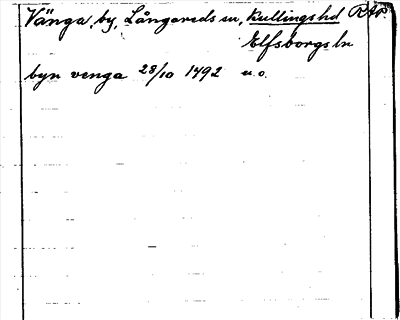 Vänga, by, Långareds sn, Kullings hd RAP.
Elfsborgs ln
byn venga 28/10 1492 u.o.